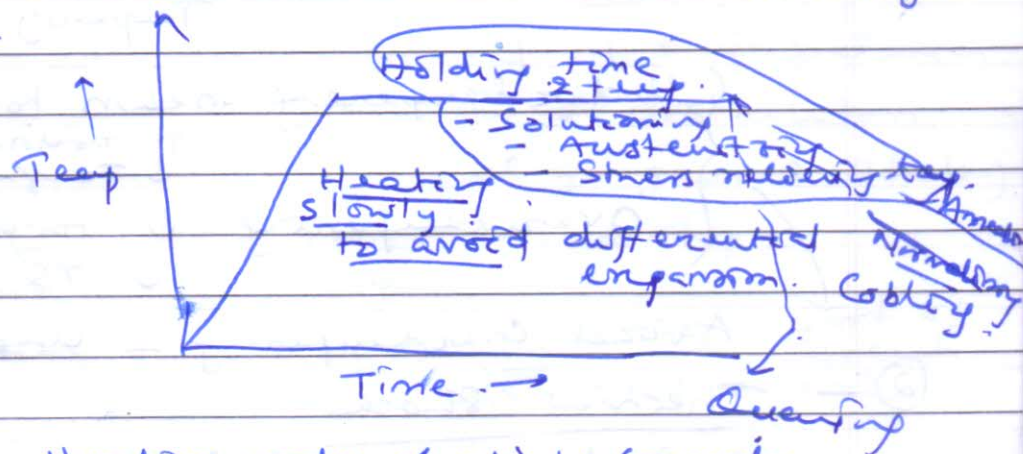 Holding time
& temp.
- Solutioning
- Austenitizing
- Stress relieving temp.
Temp
Heating
slowly
to avoid differential
expansion.
Normalising
Cooling.
Time
Quenching